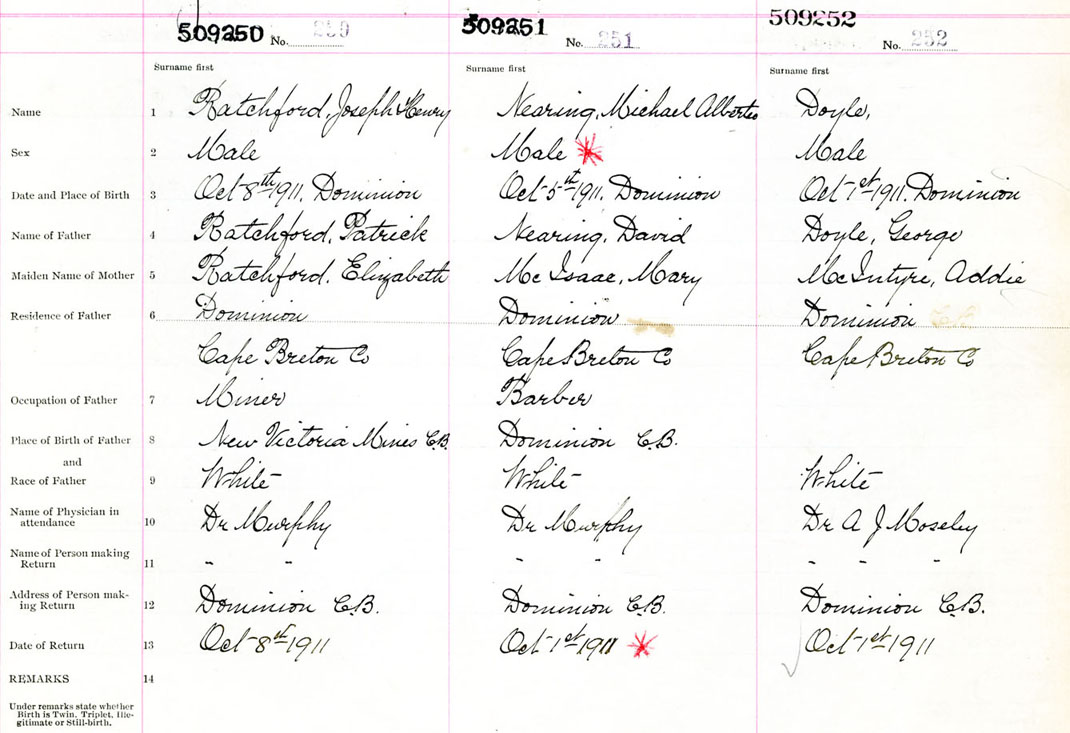 509250 No. 250 509251 No. 251 509252 No. 252
Surname first Surname first Surname first
Name 1 Ratchford, Joseph Henry Nearing, Michael Albertus Doyle,
Sex 2 Male Male Male
Date and Place of Birth 3 Oct 8th 1911. Dominion Oct 5th 1911. Dominion Oct 1st 1911. Dominion
Name of Father 4 Ratchford, Patrick Nearing, David Doyle, George
Maiden Name of Mother 5 Ratchford, Elizabeth McIsaac, Mary McIntyre, Addie
Residence of Father 6 Dominion Dominion Dominion
Cape Breton Co Cape Breton Co Cape Breton Co
Occupation of Father 7 Miner Barber
Place of Birth of Father 8 New Victoria Mines C.B. Dominion C.B.
and
Race of Father 9 White White White
Name of Physician in
attendance 10 Dr Murphy Dr Murphy Dr A J Moseley
Name of Person making
Return 11 - - - - - - -
Address of Person mak-
ing Return 12 Dominion C.B. Dominion C.B. Dominion C.B.
Date of Return 13 Oct 8th 1911 Oct 1st 1911 Oct 1st 1911
REMARKS 14
Under remarks state whether
Birth is Twin, Triplet, Ille-
gitimate or Still-birth.